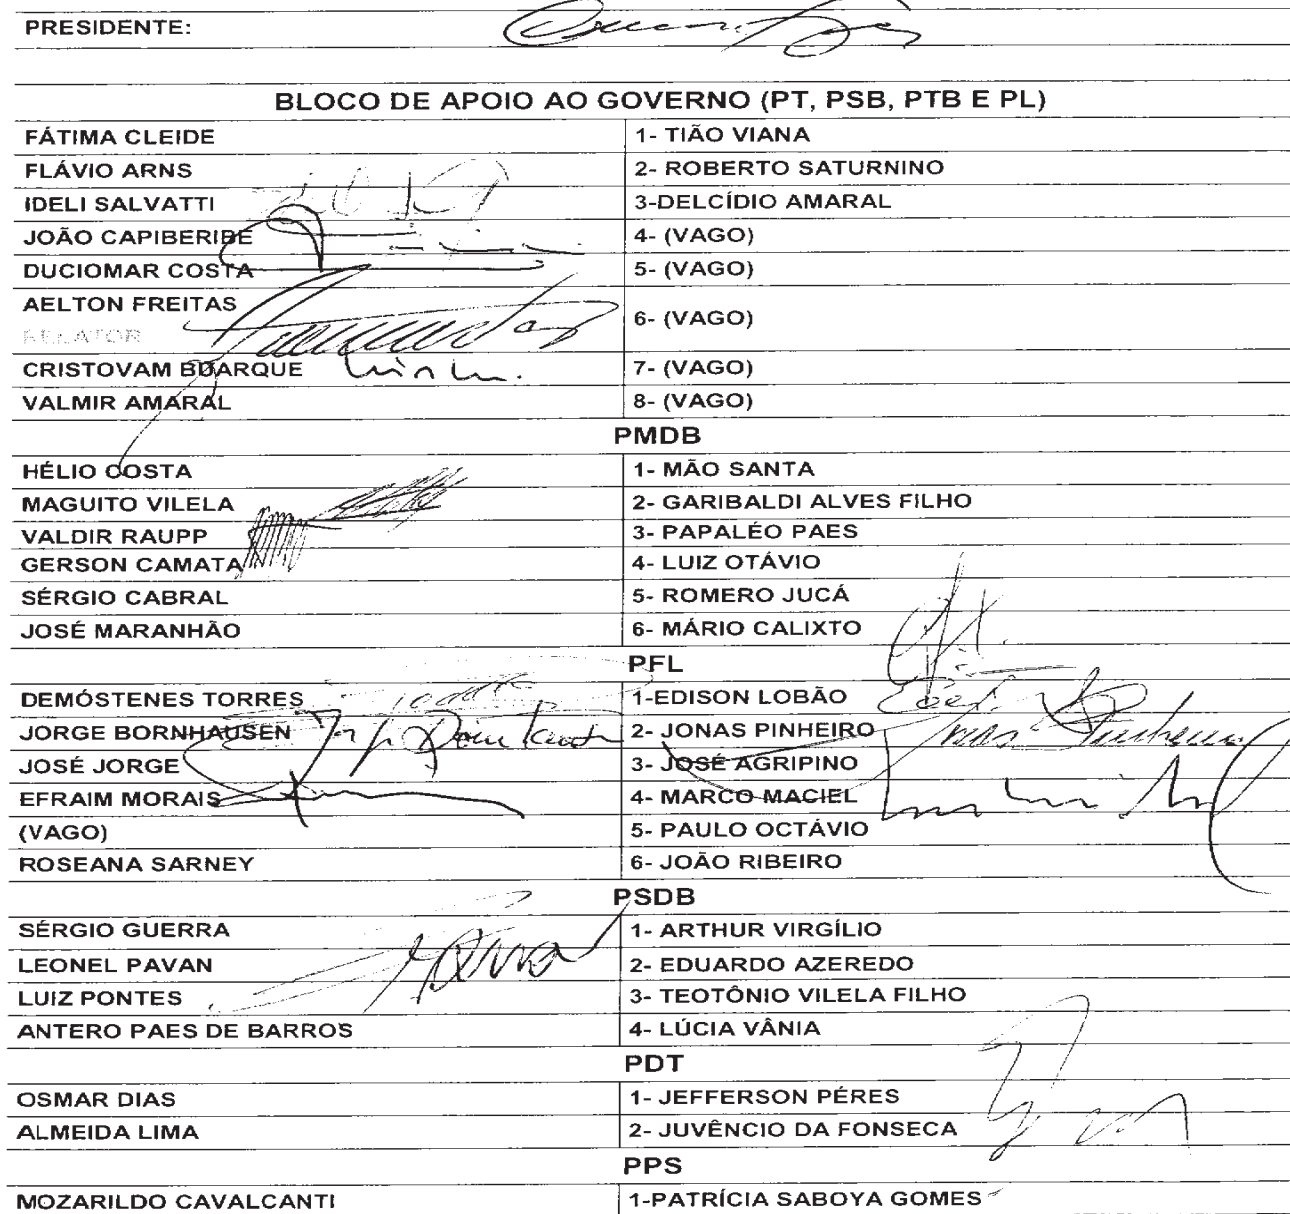 PRESIDENTE:
BLOCO DE APOIO AO GOVERNO (PT, PSB, PTB E PL)
FÁTIMA CLEIDE 1- TIÃO VIANA
FLÁVIO ARNS 2- ROBERTO SATURNINO
IDELI SALVATTI 3-DELCÍDIO AMARAL
JOÃO CAPIBERIBE 4- (VAGO)
DUCIOMAR COSTA 5- (VAGO)
AELTON FREITAS 6- (VAGO)
RELATOR
CRISTOVAM BUARQUE 7- (VAGO)
VALMIR AMARAL 8- (VAGO)
PMDB
HÉLIO COSTA 1- MÃO SANTA
MAGUITO VILELA 2- GARIBALDI ALVES FILHO
VALDIR RAUPP 3- PAPALÉO PAES
GERSON CAMATA 4- LUIZ OTÁVIO
SÉRGIO CABRAL 5- ROMERO JUCÁ
JOSÉ MARANHÃO 6- MÁRIO CALIXTO
PFL
DEMÓSTENES TORRES 1-EDISON LOBÃO
JORGE BORNHAUSEN 2- JONAS PINHEIRO
JOSÉ JORGE 3- JOSÉ AGRIPINO
EFRAIM MORAIS 4- MARCO MACIEL
(VAGO) 5- PAULO OCTÁVIO
ROSEANA SARNEY 6- JOÃO RIBEIRO
PSDB
SÉRGIO GUERRA 1- ARTHUR VIRGÍLIO
LEONEL PAVAN 2- EDUARDO AZEREDO
LUIZ PONTES 3- TEOTÔNIO VILELA FILHO
ANTERO PAES DE BARROS 4- LÚCIA VÂNIA
PDT
OSMAR DIAS 1- JEFFERSON PÉRES
ALMEIDA LIMA 2- JUVÊNCIO DA FONSECA
PPS
MOZARILDO CAVALCANTI 1-PATRÍCIA SABOYA GOMES